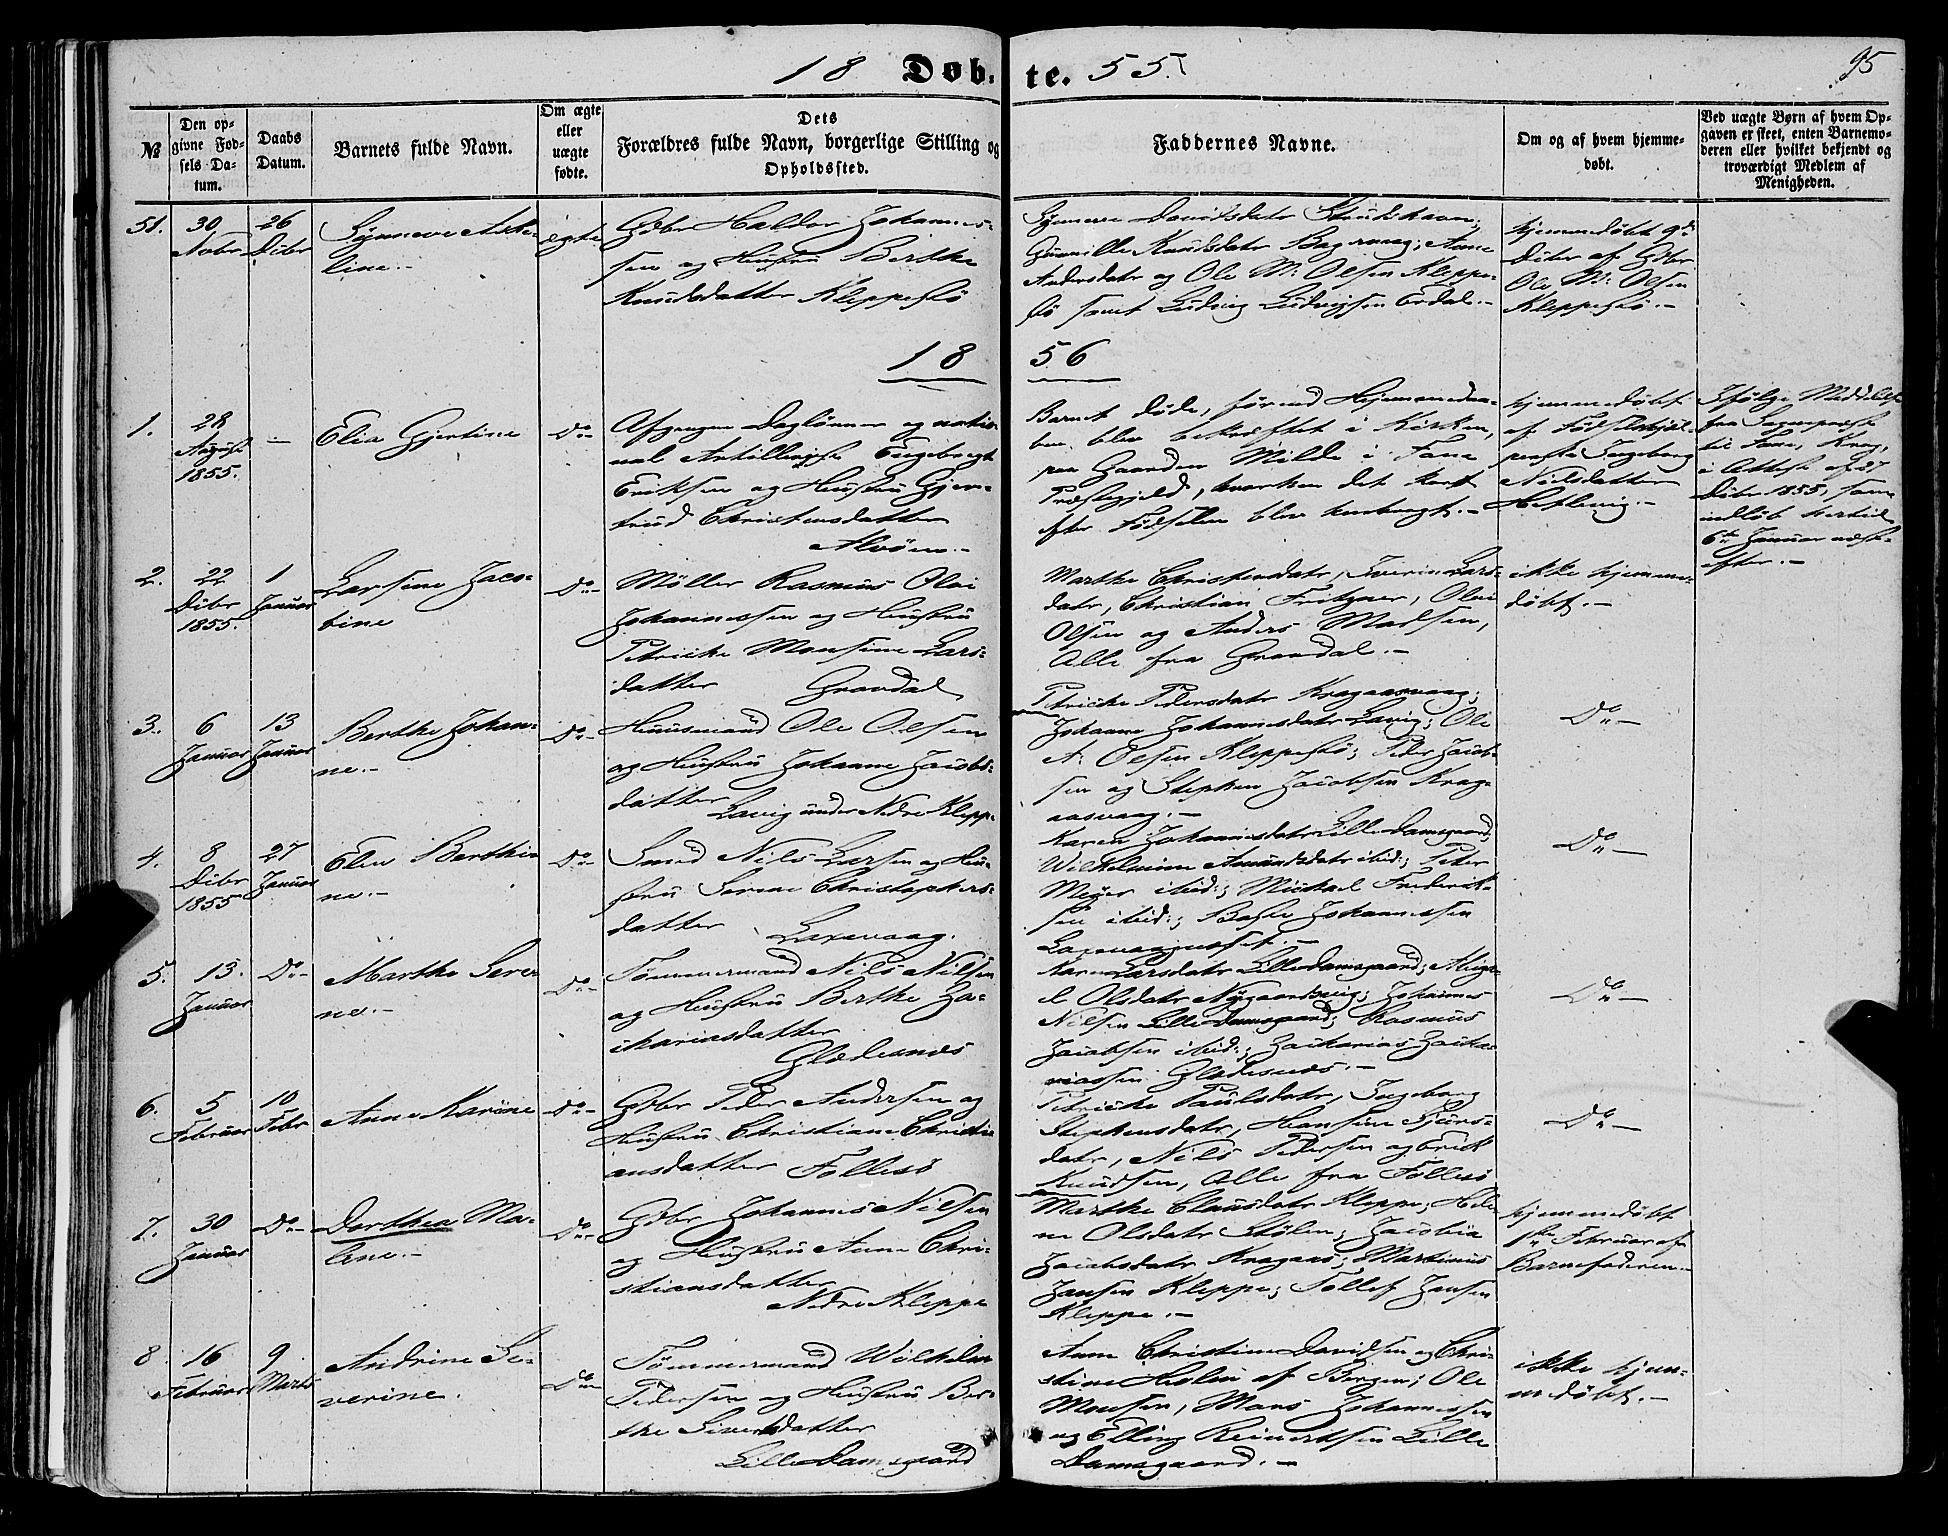 18 Døb-te. 55.
95
№
Den op-
givne Fød-
sels Da-
tum.
Daabs
Datum.
Barnets fulde Navn.
Om ægte
eller
uægte
fødte.
Dets
Forældres fulde Navn, borgerlige Stilling og
Opholdssted.
Faddernes Navne.
Om og af hvem hjemme-
døbt.
Ved uægte Børn af hvem Op-
gaven er skeet, enten Barnemo-
deren eller hvilket bekjendt og
troværdigt Medlem af
Menigheden.
51.
30
Nobr
26
Dcbr
Synneve Aste-
line.-
egte
Gdbr Haldor Johannes-
sen og Hustru Berthe
Knudsdatter Klippesø
Synneve Davidsdatr
Gunnille Knudsdatr Anne
Andersdatr og Ole M: Olsen Kleppe-
sø samt Ludvig Ludvigsen Erdal.-
hjemmedøbt 9de
Dcbr af Gdbr
Ole M: Olsen
Kleppesø.-
18 56
1.
28
August
1855.
-
Elia Gjertine
Do-
Afgangen Daglønner og natio-
nal Artillerist Engebregt
Eriksen og Hustru Gjer-
trud Christensdatter
Alvøen.-
Barnet døde, førend Hjemmedaa-
ben blev bekræftet i Kirken,
paa Gaarden Milde i Fane
Præstegjeld, hvorhen det kort
efter Fødselen blev henbragt.-
hjemmedøbt
af Fødselshjæl-
Ingeborg
Nielsdatter
Hetlevig.-
Ifølge Meddelelse
fra Sognepræst
til Fane, Krag,
i Attest af 27
Dcbr 1855, som
indløb hertil
6te Januar næst-
efter.-
2.
22
Dcbr
1855.
1
Januar
Larsine Jaco-
bine
Do-
Møller Rasmus Olai
Johannessen og Hustru
Petricke Monsine Lars-
datter Gravdal
Marthe Christensdatr, Severin Lars-
datr, Christian Fritzner, Olai
Olsen og Anders Madsen,
Alle fra Gravdal.-
ikke hjemme-
døbt.-
3.
6
Januar
13
Januar
Berthe Johan-
ne.-
Do-
Huusmand Ole Olsen
og Hustru Johanne Jacobs-
datter
Lavig under Nedre Kleppe
Petricke Pedersdatr Kragaasvaag;
Johanne Johannesdatr Lavig; Ole
A. Olsen Kleppesø; Peder Jacob-
sen og Stephen Jacobsen Krag-
aasvaag.-
Do-
4.
8
Dcbr
1855
27
Januar
Elen Berthi-
ne.-
Do-
Smed Nils Larsen og Hu-
stru Serine Christophers-
datter Laxevaag.
Karen Johannesdatr Lille Damsgaard;
Wilhelmine Amundsdatr ibid:; Peter
Meyer ibid:; Michael Frederik-
sen ibid:; Johannessen
Laxevaagneset.-
Do-
5.
13.
Januar
Do-
Marthe Seve-
ne.-
Do-
Tømmermand Nils Nilsen
og Hustru Berthe Za-
chariasdatter
Gladesnæs
Karen Larsdatr Lille Damsgaard;
Olsdatr Nygaardsvig; Johannes
Nilsen Lille Damsgaard; Rasmus
Jacobsen ibid:; Zacharias Zacha-
riassen Gladesnæs.-
Do-
6.
5
Februar
10
Febr
Anne Karine
Do-
Gdbr Peder Andersen og
Hustru Christiane Christi-
ansdatter Follesø
Petricke Paulsdatr, Ingeborg
Stephensdatr, Hansine Sjurs-
datr, Nils Pedersen og Erik
Knudsen, Alle fra Follesø
Do-
7.
30
Januar
Do-
Dorthea Ma-
lene.-
Do-
Gdbr Johannes Nilsen
og Hustru Anne Chri-
stiansdatter
Nedre Kleppe
Marthe Clausdatr Kleppe; Hele-
ne Olsdatr Stølen; Jacobia
Jacobsdatr Kragaas; Martinus
Jansen Kleppe; Tollef Jansen
Kleppe.-
hjemmedøbt
1ste Februar af
Barnefaderen.-
8
16
Februar
9
Marts
Andrine Se-
verine.
Do-
Tømmermand Wilhelm
Pedersen og Hustru Ber-
the Siversdatter
Lille Damsgaard
Anne Christine Davidsen og Chri-
stine Holm af Bergen; Ole
Monsen, Mons Johannessen
og Elling Reinertsen Lille
Damsgaard.-
ikke hjem-
medøbt.-